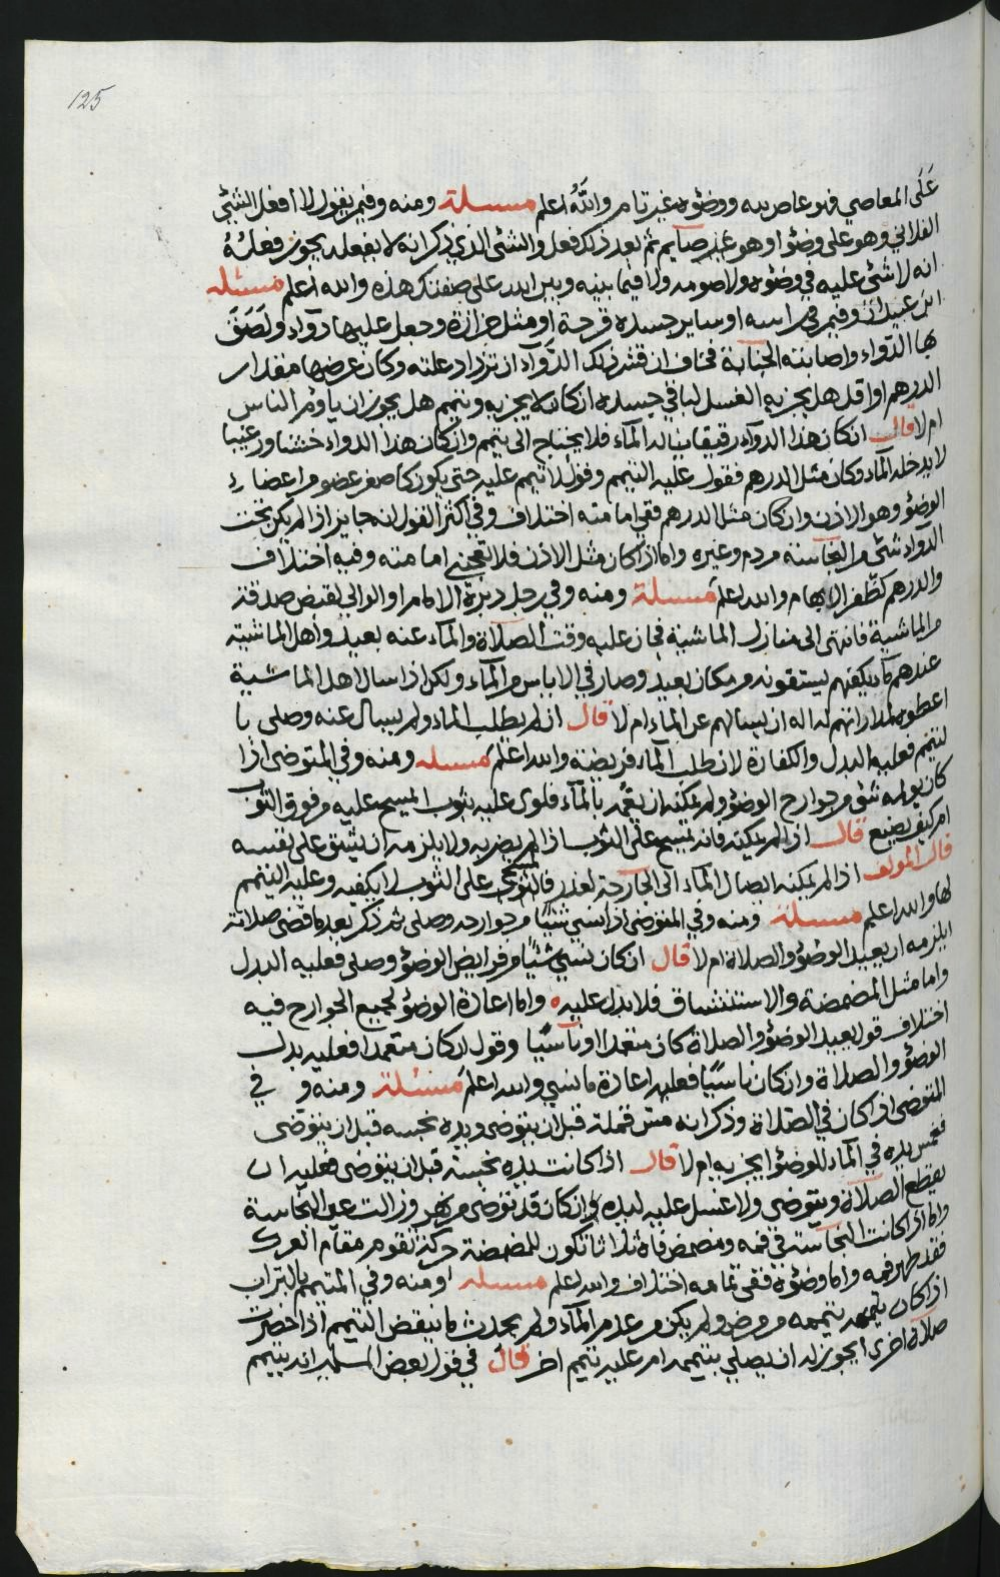 125
على المعاصي فهو عاص لله ووضؤه غير تام والله أعلم مسئلة ومنه وفيمن يقول لا أفعل الشئ
الفلاني وهو على وضؤ أو هو غير صايم ثم بعد ذلك فعل والشئ الذي ذكر انه لا يفعله يجوز فعله
انه لا شئ عليه في وضؤه ولا صومه ولا فيما بينه وبين الله على صفتك هذه والله أعلم مسئله
ابن عبيدان وفيمن في راسه او ساير جسده قرحة او مثل حزازة وجعل عليها دواء ولصق
بها الدواء واصابته الجنابة فخاف ان قشر ذلك الدواء ان تزداد علته وكان عرضها مقدار
الدرهم او اقل هل يجزيه الغسل لباقي جسده ان كان لا يجزيه ويتيمم هل يجوز ان ياؤم الناس
ام لا قال ان كان هذا الدواء رقيقا يناله الماء فلا يحتاج الى تيمم وان كان هذا الدواء خشنا ورغيبا
لا يدخله الماء وكان مثل الدرهم فقول عليه التيمم وقول لا تيمم عليه حتى يكون كاصغر عضو من اعضاء
الوضؤ وهو الاذن وان كان مثل الدرهم ففي امامته اختلاف وفي اكثر القول انه جايز اذا لم يكن تحت
الدواء شئ من النجاسة من دم وغيره واما اذا كان مثل الاذن فلا تعجبني امامته وفيه اختلاف
والدرهم كظفر الابهام والله اعلم مسئلة ومنه وفي رجل دبره الامام او الوالي لقبض صدقة
من الماشية فانتهى الى منازل الماشية فحان عليه وقت الصلاة والماء عنه بعيد واهل الماشية
عندهم ما يكفيهم يستقونه من مكان بعيد وصار في الاياس من الماء ولكن اذا سال اهل الماشية
اعطوه لمداراتهم له اله ان يسالهم عن الماء ام لا قال ان لم يطلب الماء ولم يسال عنه وصلى با
لتيمم فعليه البدل والكفارة لان طلب الماء فريضة والله اعلم مسئله ومنه وفي المتوضى اذا
كان يولمه شئ من جوارح الوضؤ ولم يمكنه ان يعمه بالماء فلوى عليه بثوب المسيح عليه من فوق الثوب
ام كيف يصنع قال اذا لم يمكنه فانه يمسح على الثوب اذا لم يضر به ولا يلزمه ان يشق على نفسه
قال المولف اذا لم يمكنه ايصال الماء الى الجارحة لعذر فالمسح على الثوب لا يكفيه وعليه التيمم
لها والله اعلم مسئلة ومنه وفي المتوضى اذا نسي شئيًا من جوارحه وصلى ثم ذكر بعد ما قضى صلاته
ايلزمه ان يعيد الوضؤ والصلاة ام لا قال ان كان نسي شئيًا من فرايض الوضؤ وصلى فعليه البدل
واما مثل المضمضة والاستنشاق فلا بدل عليه واما اعادة الوضؤ لجميع الجوارح فيه
اختلاف قول يعيد الوضؤ والصلاة كان متعمدا او ناسيًا وقول ان كان متعمدا فعليه بدل
الوضؤ والصلاة وان كان ناسيًا فعليه اعادة ما نسي والله اعلم مسئلة ومنه و في
المتوضى اذا كان في الصلاة وذكر انه مس قملة قبل ان يتوضى ويده نجسه قبل ان يتوضى
فغمس يده في الماء للوضؤ ايجزيه ام لا قال اذا كانت يده نجسة قبل ان يتوضى فعليه ان
يقطع الصلاة ويتوضى ولا غسل عليه ليده وان كان قد توضى من نهر وزالت عين النجاسة
واما اذا كانت النجاسة في فمه ومضمض فاه ثلاثا تكون للمضمضة حركة تقوم مقام العرك
فقد طهر فمه واما وضؤه ففي تمامه اختلاف والله اعلم مسئله ومنه وفي المتيمم بالتراب
اذا كان تيممه من مرض ولم يكن من عدم الماء ولم يحدث ما ينقض التيمم اذا حضرت
صلاة اخرى ايجوز له ان يصلي بتيممه ام عليه تيمم اخر قال في قول بعض المسلمين انه يتيمم